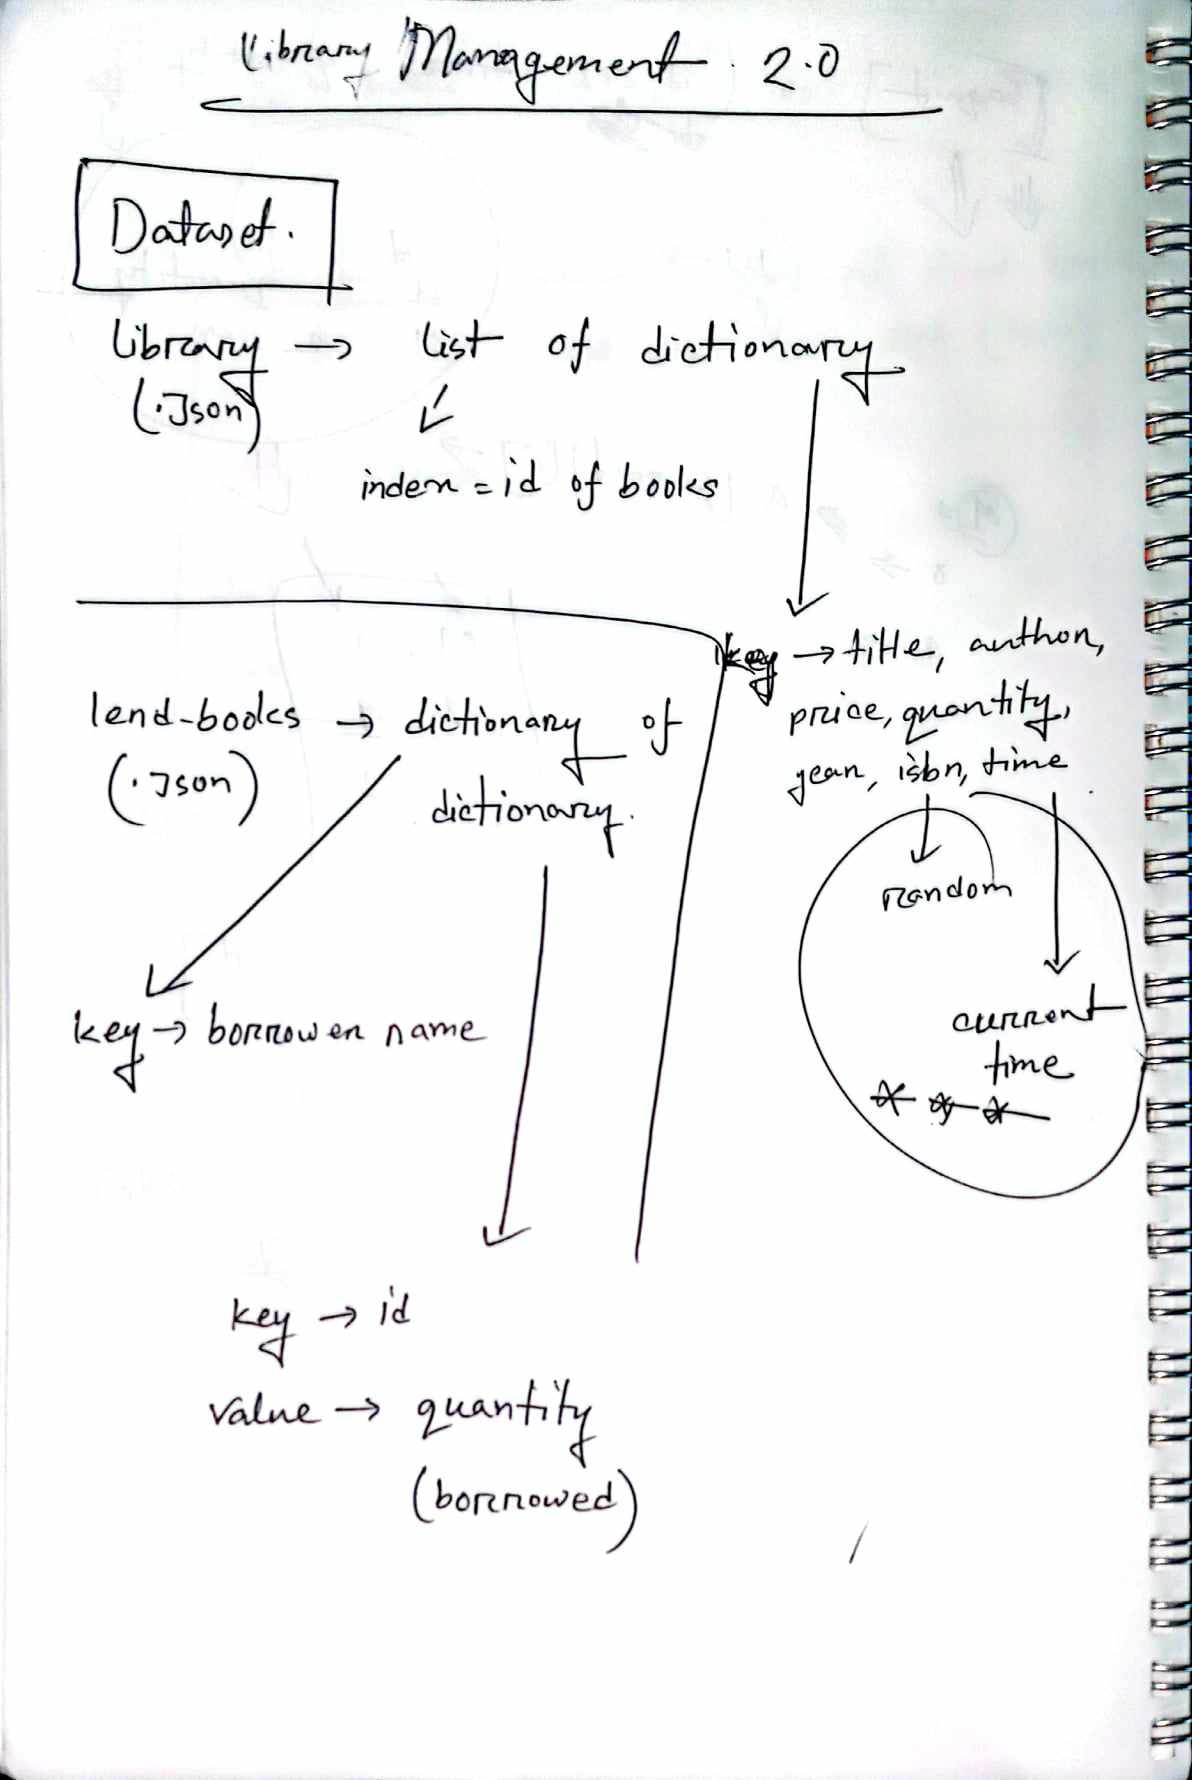 Library Management 2.0
Dataset.
library → list of dictionary
(.Json)
index = id of books
key → title, author,
price, quantity,
year, isbn, time
random
current
time
* * *
lend-books → dictionary of
(.Json)
dictionary.
key → borrower name
key → id
value → quantity
(borrowed)